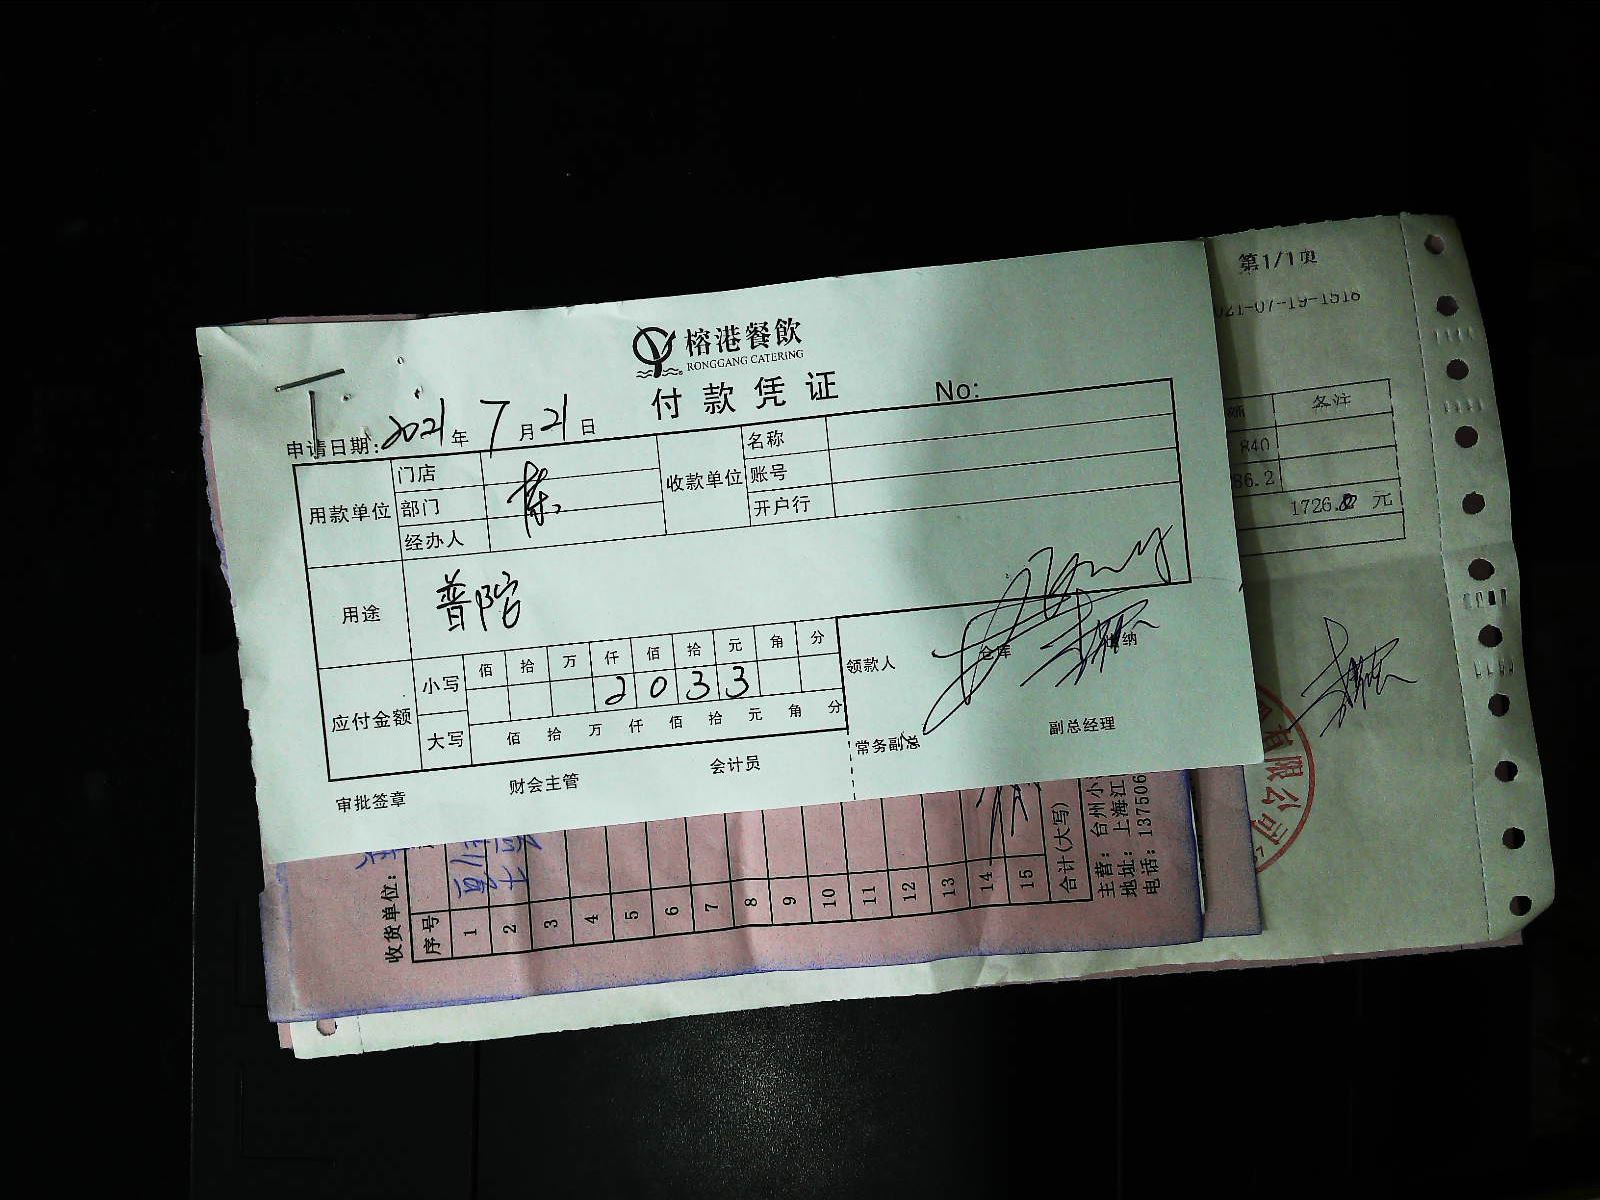 榕港餐飲
RONGGANG CATERING
付款凭证 No:
申请日期: 2021 年 7 月 21 日
用款单位 门店 收款单位 名称
部门 账号
经办人 开户行
用途 普陀
应付金额 小写 佰 拾 万 仟 佰 拾 元 角 分
2 0 3 3
大写 佰 拾 万 仟 佰 拾 元 角 分
领款人 仓库 出纳
常务副总 副总经理
审批签章 财会主管 会计员
第1/1页
021-07-19-1518
备注
840
86.2
1726. 元
有限公司
收货单位:
序号 1 2 3 4 5 6 7 8 9 10 11 12 13 14 15
合计(大写)
主营: 台州小
地址: 上海江
电话: 137506